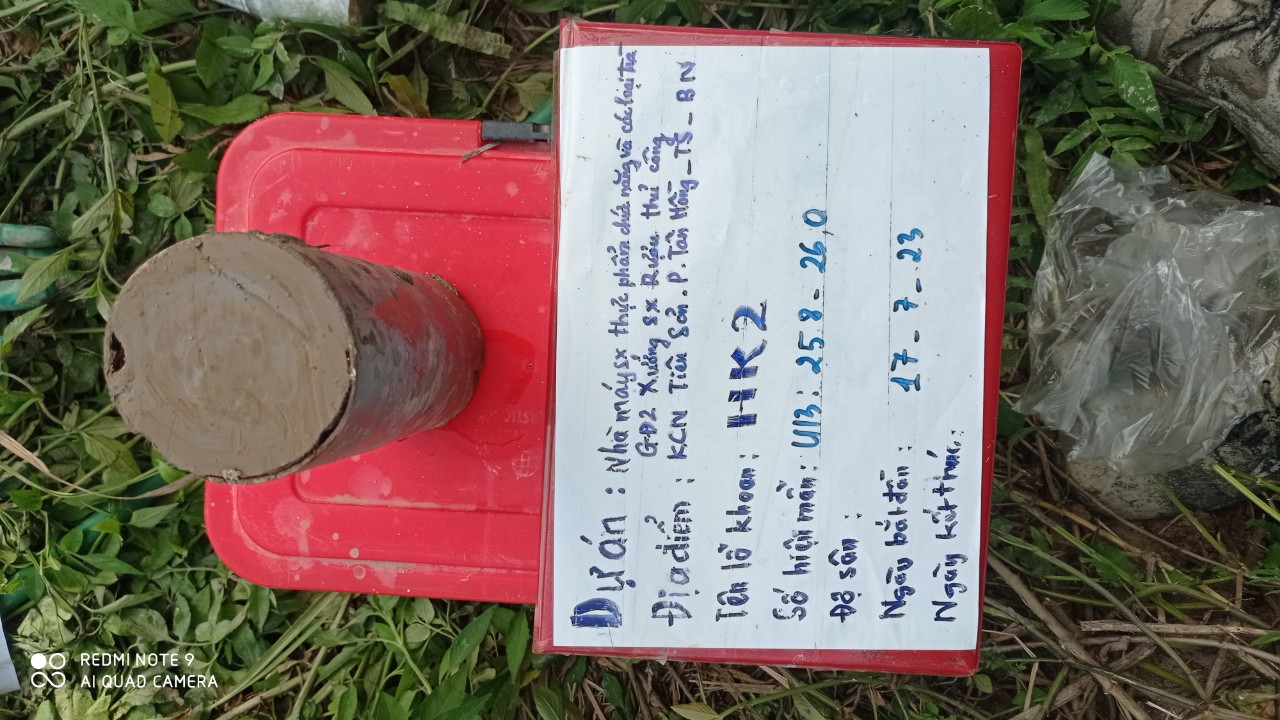 Dự án : Nhà máy sx thực phẩm chức năng và các loại trà -
GĐ2 Xưởng sx Rượu thủ công
Địa điểm : KCN Tiên Sơn - P. Tân Hồng - TS - BN
Tên lỗ khoan : HK2
Số hiệu mẫu : U13 : 25,8 - 26,0
Độ sâu :
Ngày bắt đầu : 17 - 7 - 23
Ngày kết thúc :
REDMI NOTE 9
AI QUAD CAMERA